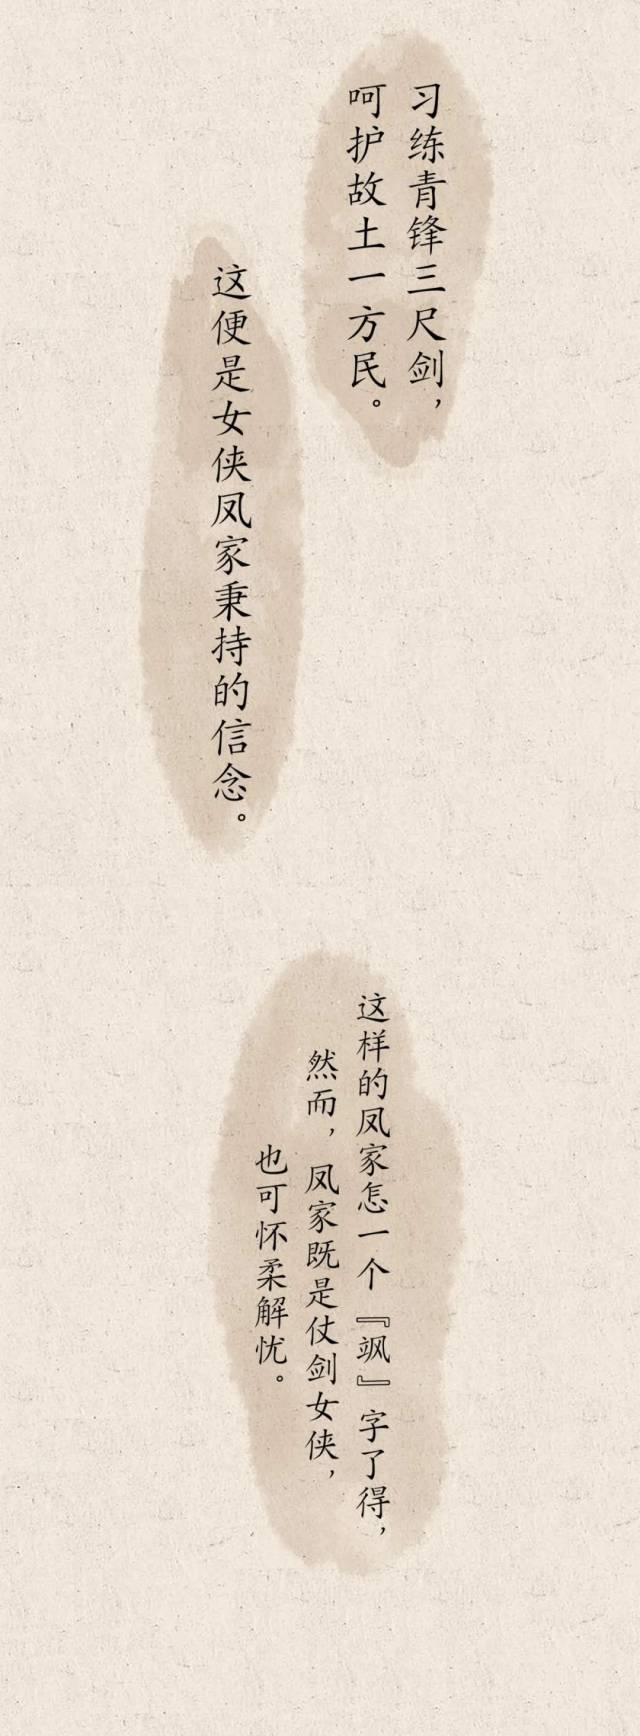 习练青锋三尺剑，
呵护故土一方民。
这便是女侠凤家秉持的信念。
这样的凤家怎一个『飒』字了得，
然而，凤家既是仗剑女侠，
也可怀柔解忧。